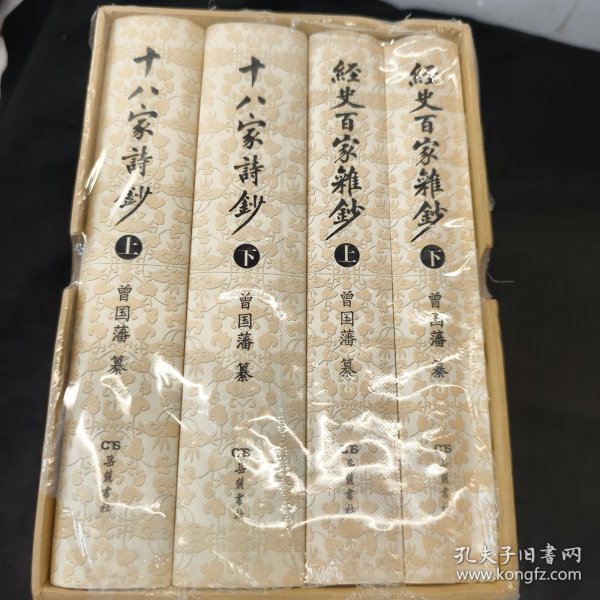 十八家詩鈔
上
曾国藩 纂
CB
岳麓書社
十八家詩鈔
下
曾国藩 纂
CB
岳麓書社
經史百家雜鈔
上
曾国藩 纂
CB
岳麓書社
經史百家雜鈔
下
曾国藩 纂
CB
岳麓書社
孔夫子旧書网
www.kongfz.com